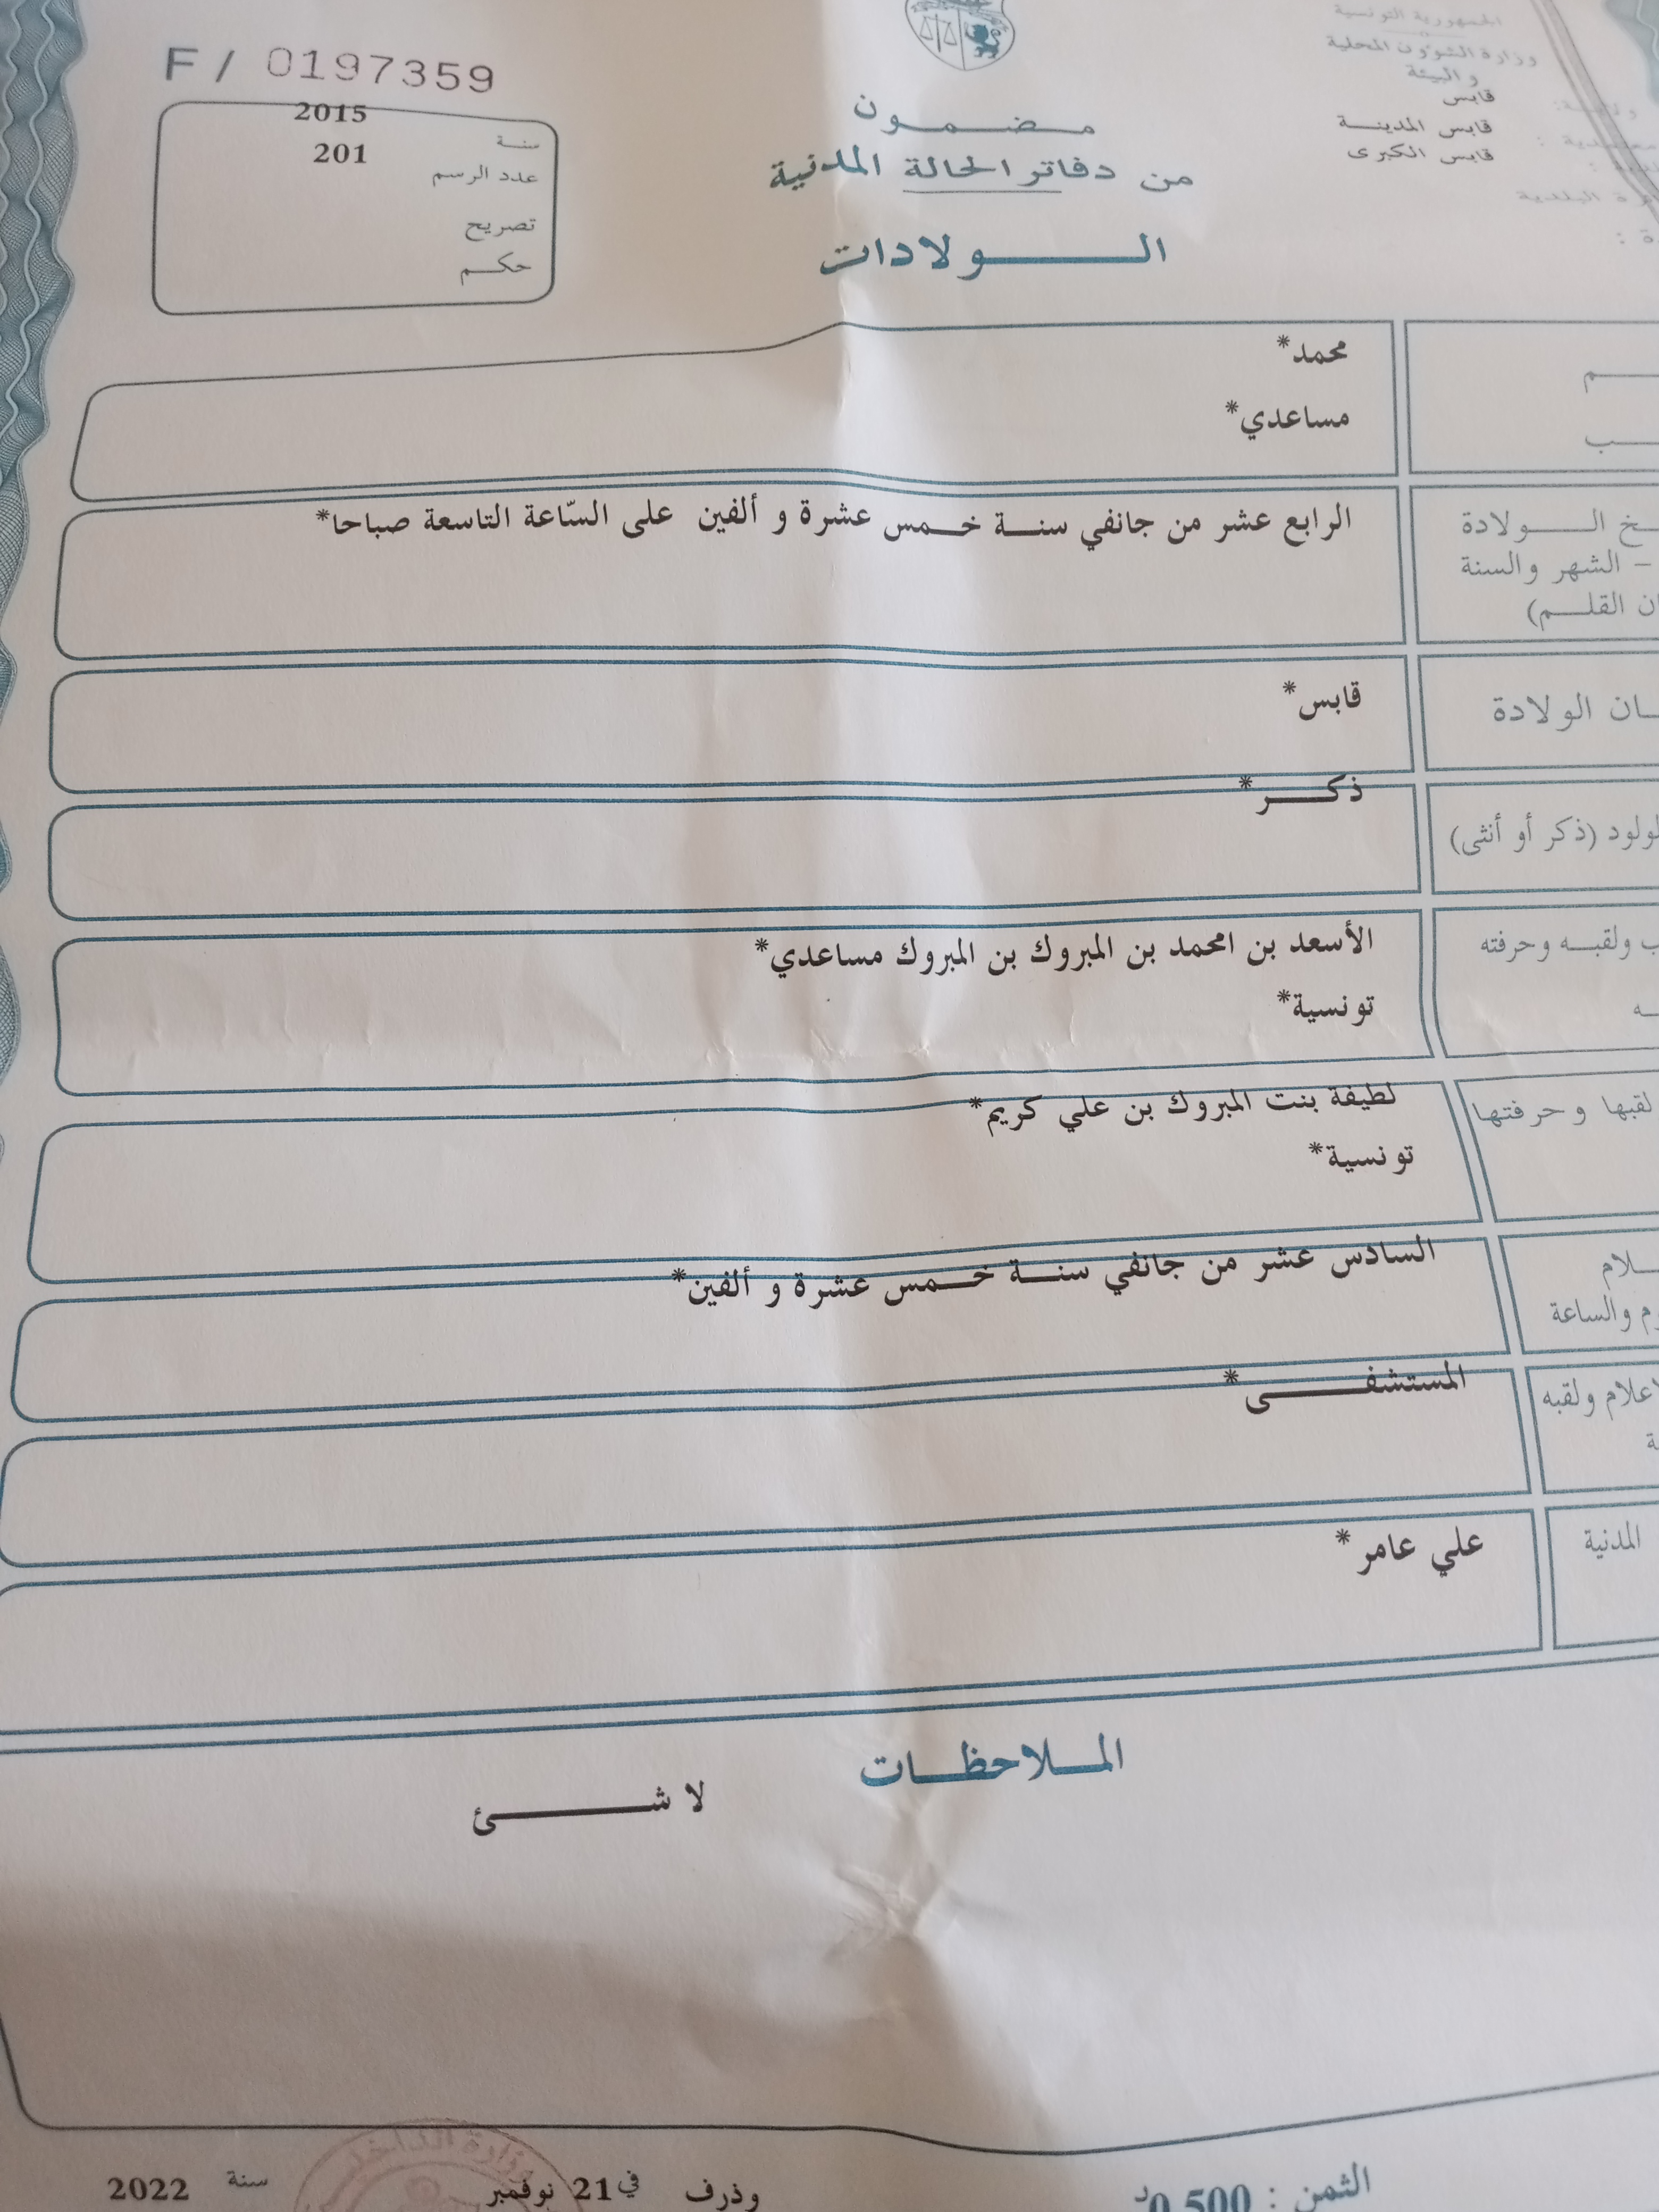 F / 0197359
2015
سنة
201
عدد الرسم
تصريح
حكم
الجمهورية التونسية
وزارة الشؤون المحلية
و البيئة
قابس
قابس المدينة
قابس الكبرى
مضمون
من دفاتر الحالة المدنية
الولادات
محمد*
مساعدي*
الرابع عشر من جانفي سنة خمس عشرة و ألفين على السّاعة التاسعة صباحا*
الولادة
– الشهر والسنة
القلم)
قابس*
الولادة
ذكر*
(ذكر أو أنثى)
الأسعد بن امحمد بن المبروك بن المبروك مساعدي*
ولقبه وحرفته
تونسية*
لطيفة بنت المبروك بن علي كريم*
لقبها و حرفتها
تونسية*
السادس عشر من جانفي سنة خمس عشرة و ألفين*
والساعة
المستشفى*
ولقبه
علي عامر*
المدنية
الملاحظات
لا شئ
الثمن : 0,500د
وذرف في 21 نوفمبر سنة 2022
وزارة الداخلية